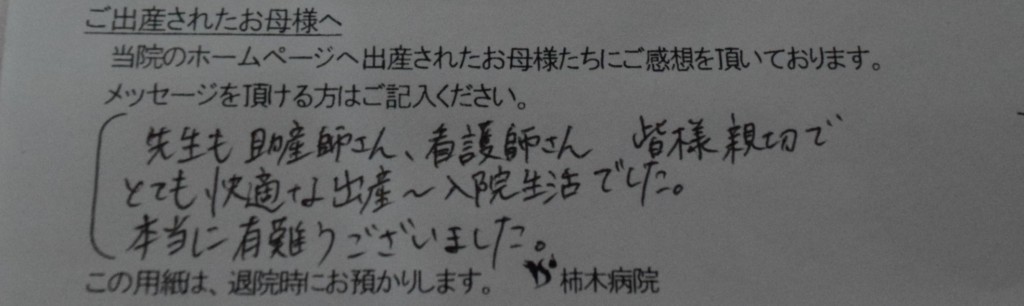 ご出産されたお母様へ
当院のホームページへ出産されたお母様たちにご感想を頂いております。
メッセージを頂ける方はご記入ください。
先生も助産師さん、看護師さん 皆様親切で
とても快適な出産〜入院生活でした。
本当に有難うございました。
この用紙は、退院時にお預かりします。 柿木病院